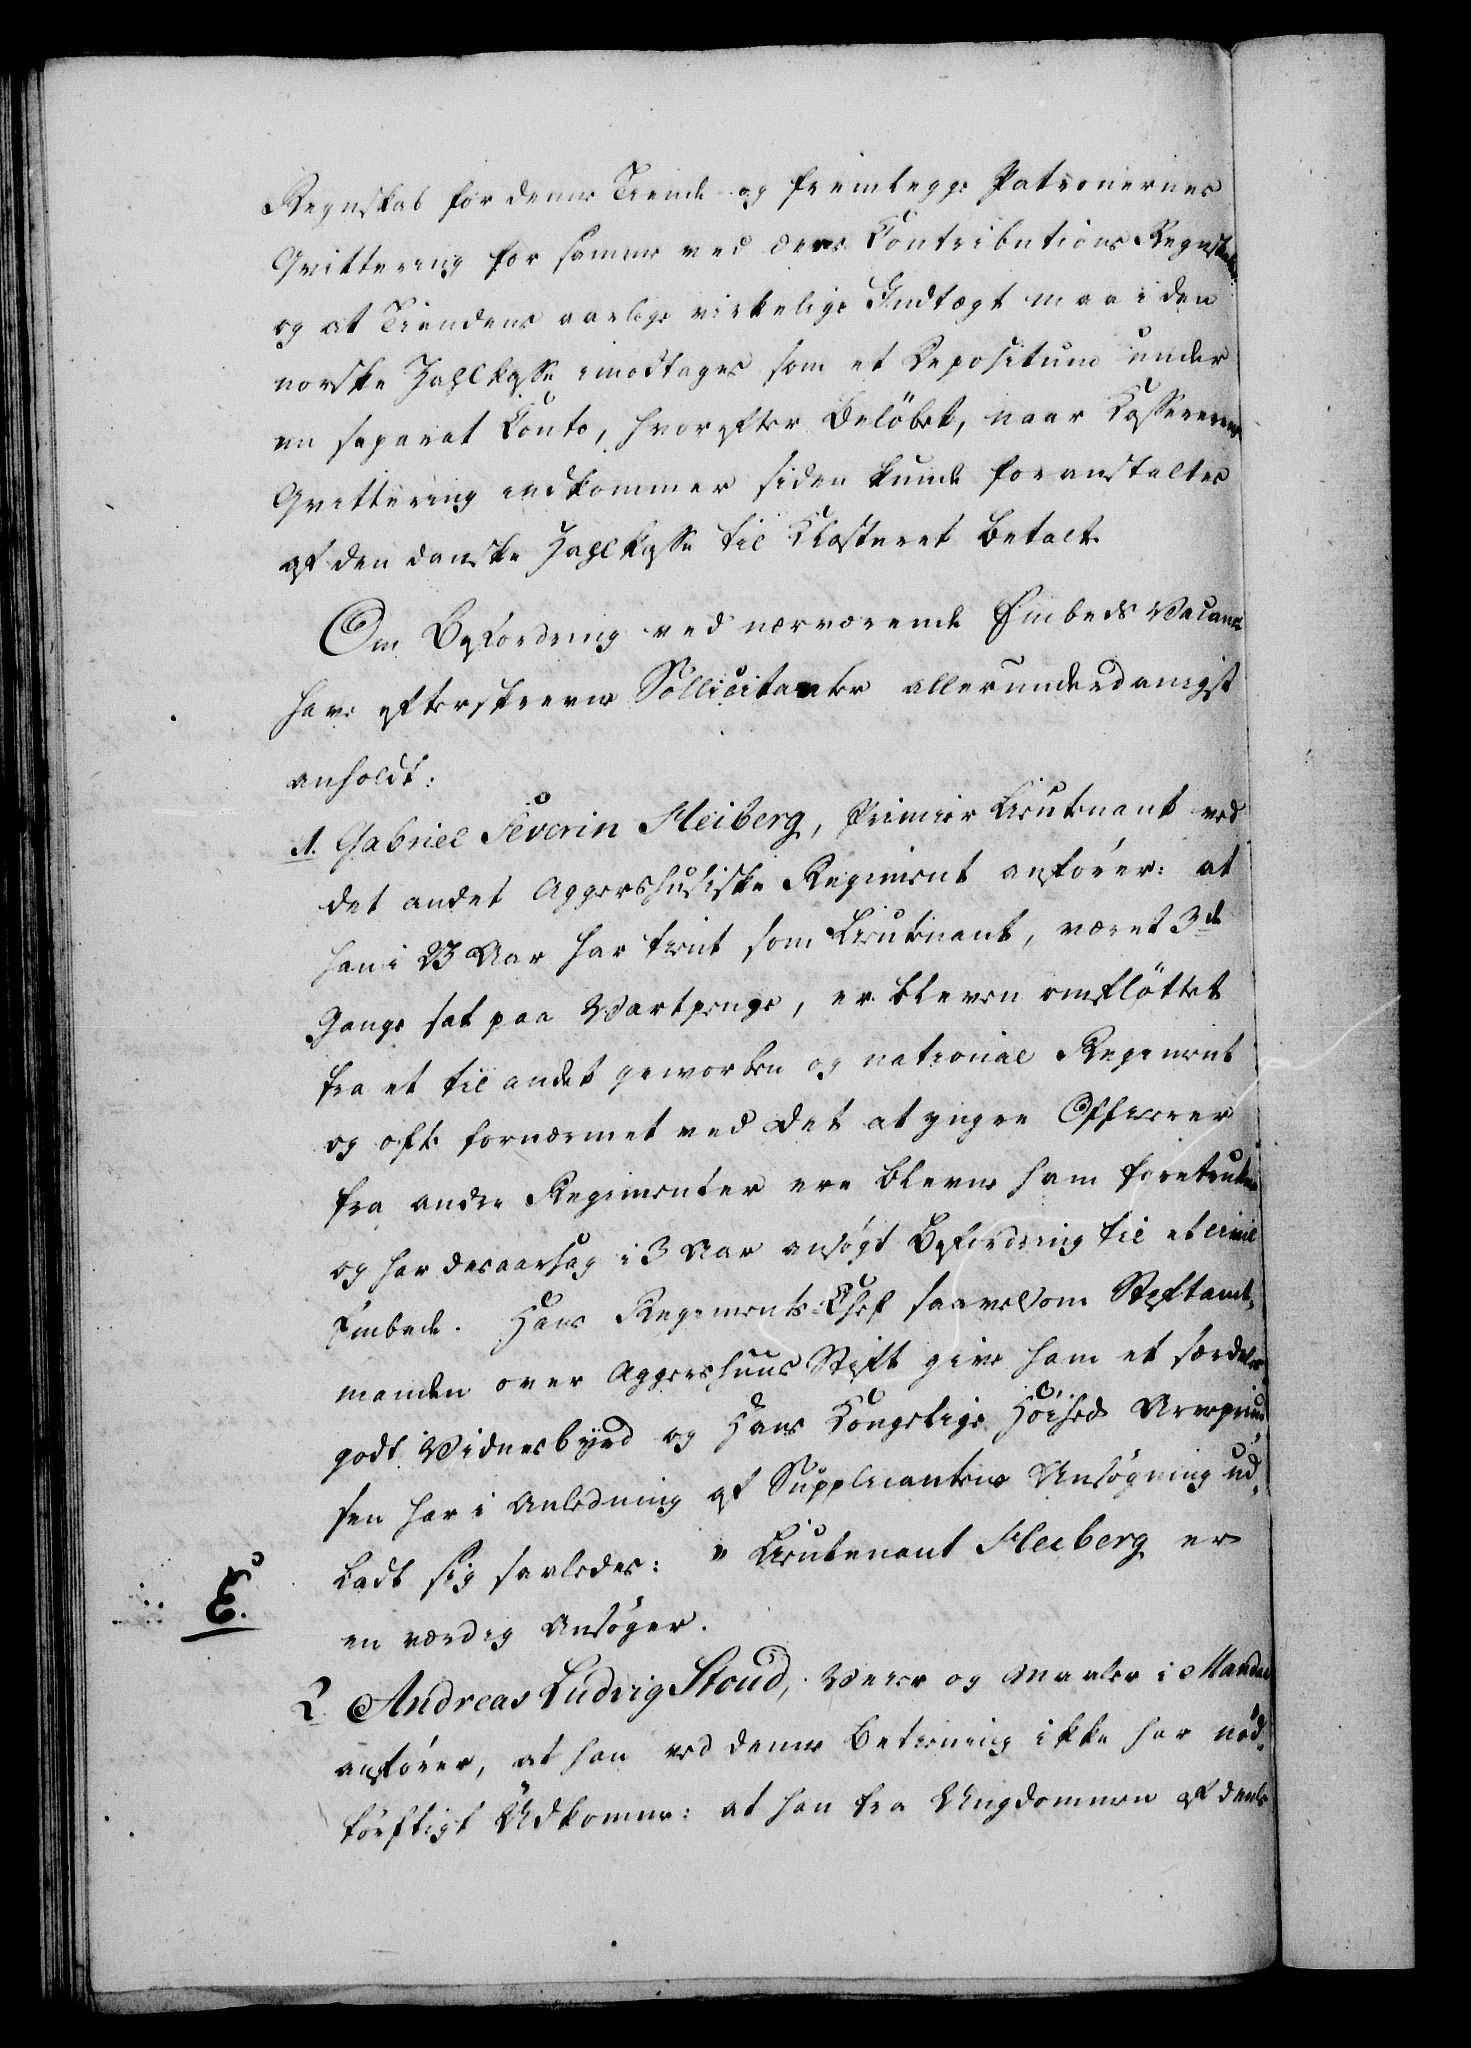 Regnskab for denne Tiende og fremlegge Patronernes
Qvittering for samme ved deres Contributions Regnskaber
og at Tiendens aarlige virkelige Indtægt maa i den
norske Zahlkasse imodtages som et Depositum under
en separat Conto, hvorefter Beløbet, naar Kassererens
Qvittering indkommer siden kunde foranstaltes
af den danske Zahlkasse til Klosteret betalt.
Om Befordring ved nærværende Embeds Vacance
have efterskrevne Sollicitanter allerunderdanigst
anholdt:
1. Gabriel Severin Heiberg, Premier Lieutenant ved
det andet Aggershusiske Regiment anfører: at
han i 23 Aar har tient som Lieutenant, været 3de
Gange sat paa Vartpenge, er bleven omfløttet
fra et til andet geworben og national Regiment
og ofte fornærmet ved det at yngre Officerer
fra andre Regimenter ere blevne ham foretrukne
og har desaarsag i 3 Aar ansøgt Befordring til et civil
Embede. Hans Regiments-Chef saavelsom Stiftamt-
manden over Aggershuus Stift give ham et særdeles
godt Vidnesbyrd og Hans Kongelige Høihed Arveprind-
sen har i Anledning af Supplicantens Ansøgning ud-
ladt sig saaledes: "Lieutenant Heiberg er
E.
en værdig Ansøger.
2. Andreas Ludvig Stoud, Veier og Maaler i Mandal
anfører, at han ved denne Betiening ikke har nød-
tørftigt Udkomme: at han fra Ungdommen af deels